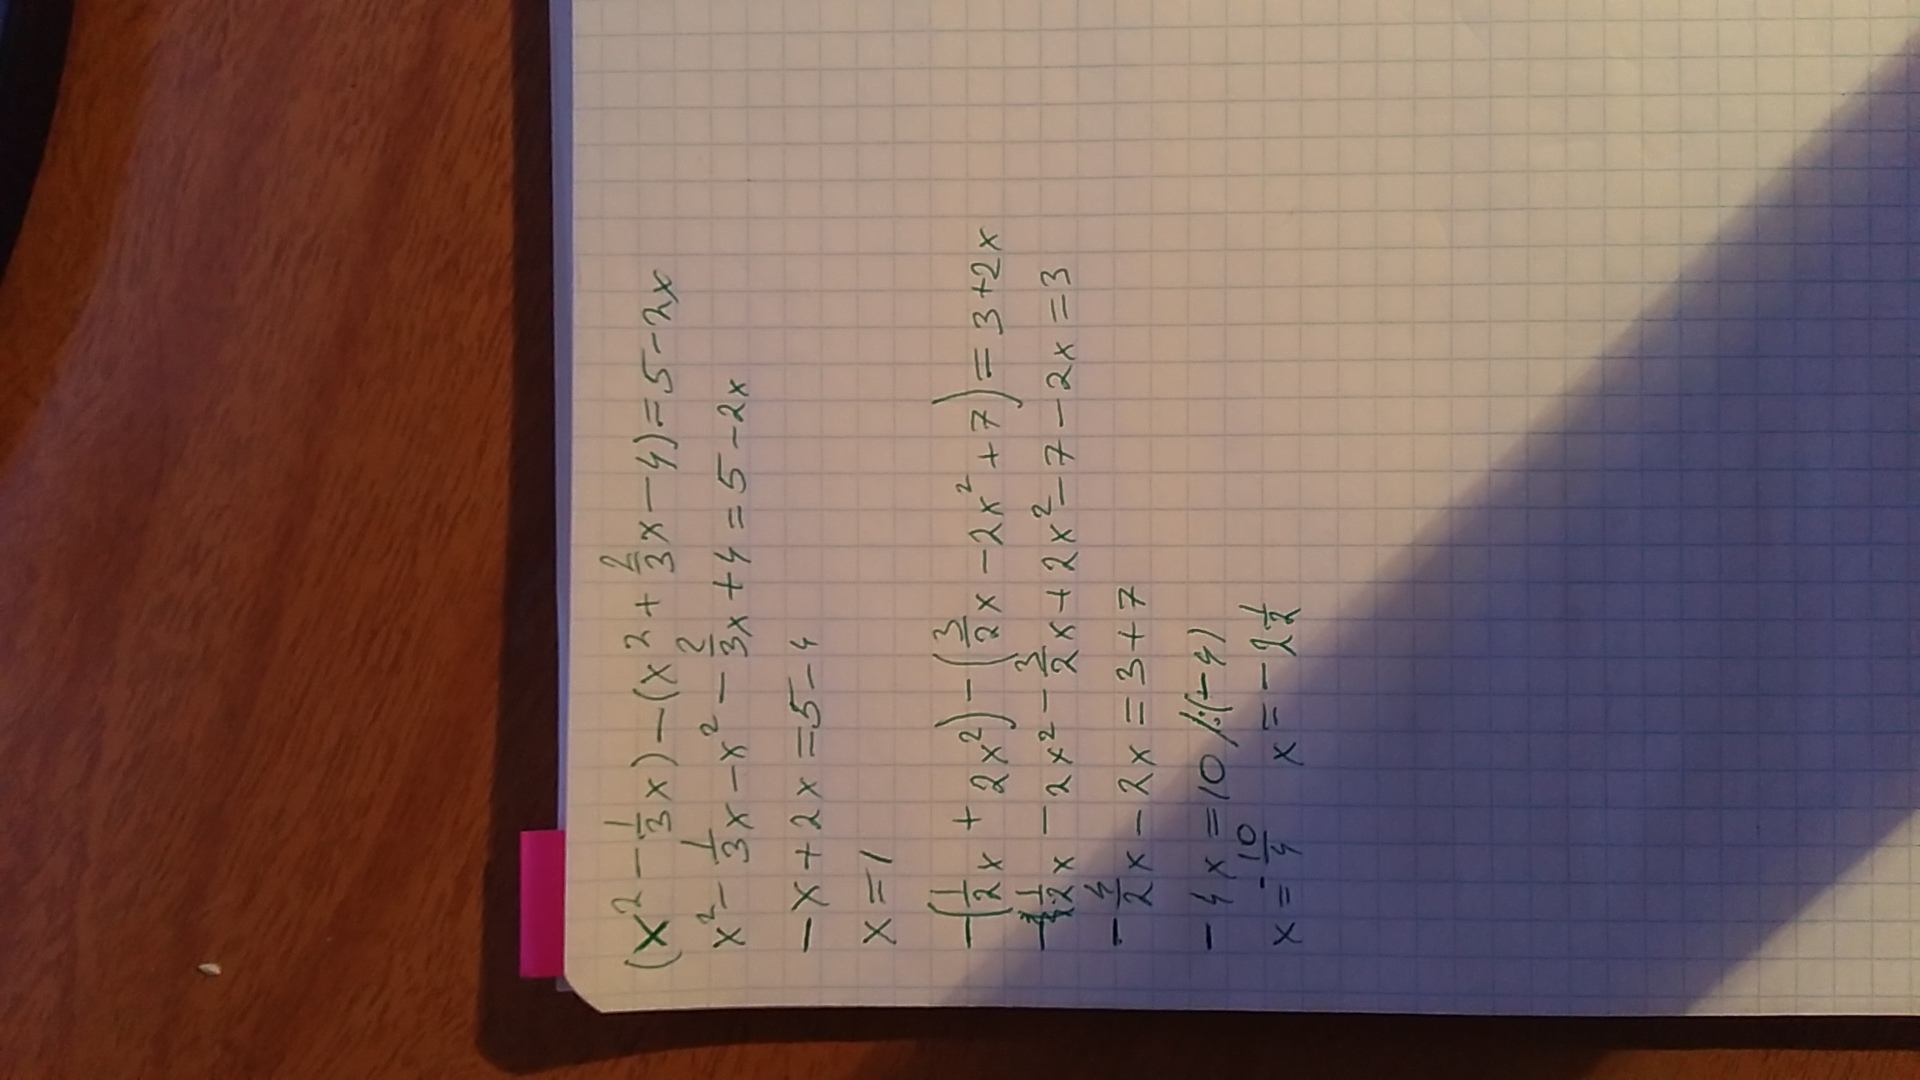 (x² - 1/3 x) - (x² + 2/3 x - 4) = 5 - 2x
x² - 1/3 x - x² - 2/3 x + 4 = 5 - 2x
- x + 2x = 5 - 4
x = 1
-(1/2 x + 2x²) - (3/2 x - 2x² + 7) = 3 + 2x
- 1/2 x - 2x² - 3/2 x + 2x² - 7 - 2x = 3
- 4/2 x - 2x = 3 + 7
- 4x = 10 /:(-4)
x = - 10/4 x = - 2 1/2